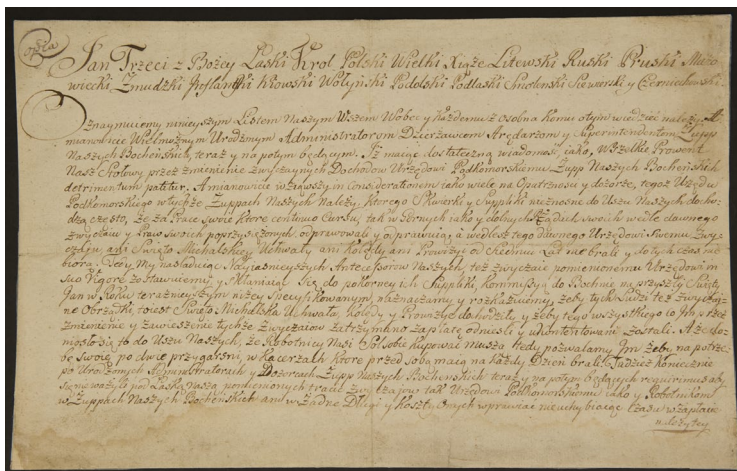 Jan Trzeci z Bożey Łaski Krol Polski Wielki Xiąże Litewski Ruski Pruski Mazo
wiecki Zmudzki Inflantski Kiowski Wołynski Podolski Podlaski Smolenski Siewierski y Czerniechowski.
Oznaymuiemy ninieyszym Listem Naszym Wszem Wobec y Każdemu z osobna komu o tym wiedzieć należy A
mianowicie Wielmożnym Urodzonym Administratorom Dzierżawcom Arędarzom y Superintendentom Zupp
Naszych Bocheńskich, teraz y na potym będącym. Iż maiąc dostateczną wiadomość, iako, Wszelkie Prowent
Nasz Stołowy przez zmienienie zwyczaynych Dochodow Urzędowi Podkomorskiemu Zupp Naszych Bocheńskich
detrimentum patitur. A mianowicie wziąwszy in Considerationem iako wiele na Opatrznosci y dozorze, tegoż Urzędu
Podkomorskiego w tychże Zuppach Naszych Należy, ktorego Skwierki y Suppliki nieznosne do Uszu Naszych docho
dzą często, że za Prace swoie ktore continuo Cursu, tak w Gornych iako y dolnych swoich wedle dawnego
zwyczaiu y Praw swoich poprzysiężonych, odprawowali y odprawuią, a wedle tego dawnego Urzędowi Swemu zwy
czaiu, ani Swięto Michalskiey Uchwały ani Kolędy ani Prowizyi od siedmiu Lat nie brali y do tych czas nie
biorą. Tedy My nasladuiąc Nayiasnieyszych Antecessorow Naszych, też zwyczaie pomienionemu Urzędowi in
suo Vigore zostawuiemy y Skłaniaiąc się do pokorney ich Suppliki, Kommissyą do Bochnie na przyszły Swięty
Jan w Roku teraznieyszym niżey Specyfikowanym, naznaczamy y rozkazuiemy, żeby tych Ludzi też zwyczay
ne Obrządki, to iest Swięto Michalska Uchwała, Kolędy y Prowizye dochodziły y żeby tego wszystkiego co Im przez
zmienienie y zniesienie tychże zwyczaiow zatrzymano zapłatę odniesli y ukontentowani zostali. A że do
niosło się to do Uszu Naszych, że Robotnicy Nasi Sol sobie kupować muszą tedy pozwalamy Im żeby na potrze
bę swoię po dwie przygarsni, w kaczerzach ktore przed sobą maią na każdy Dzień brali. Tudzież koniecznie
po Urodzonych Administratorach y Dozorcach Zupp Naszych Bocheńskich teraz y na potym będących requirimus aby
się nie ważyli pod Łaską Naszą pomienionych tracić zwyczaiow tak Urzędowi Podkomorskiemu iako y Robotnikom
w Zuppach Naszych Bocheńskich ani w żadne Długi y Koszty Onych wprawiać nie uchybiaiąc Czasu w zapłacie
należytey